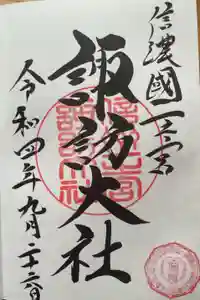 信濃國一之宮
諏訪大社
令和四年九月二十六日